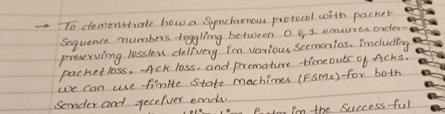 → To demonstrate how a Synchronous protocol with packet
Sequence numbers toggling between 0 & 1 ensures order-
preserving lossless delivery in various Scenarios, including
packet loss, Ack loss, and premature timeouts of Acks.
we can use finite State machines (FSMs) for both
Sender and receiver ends.
in the Success-ful